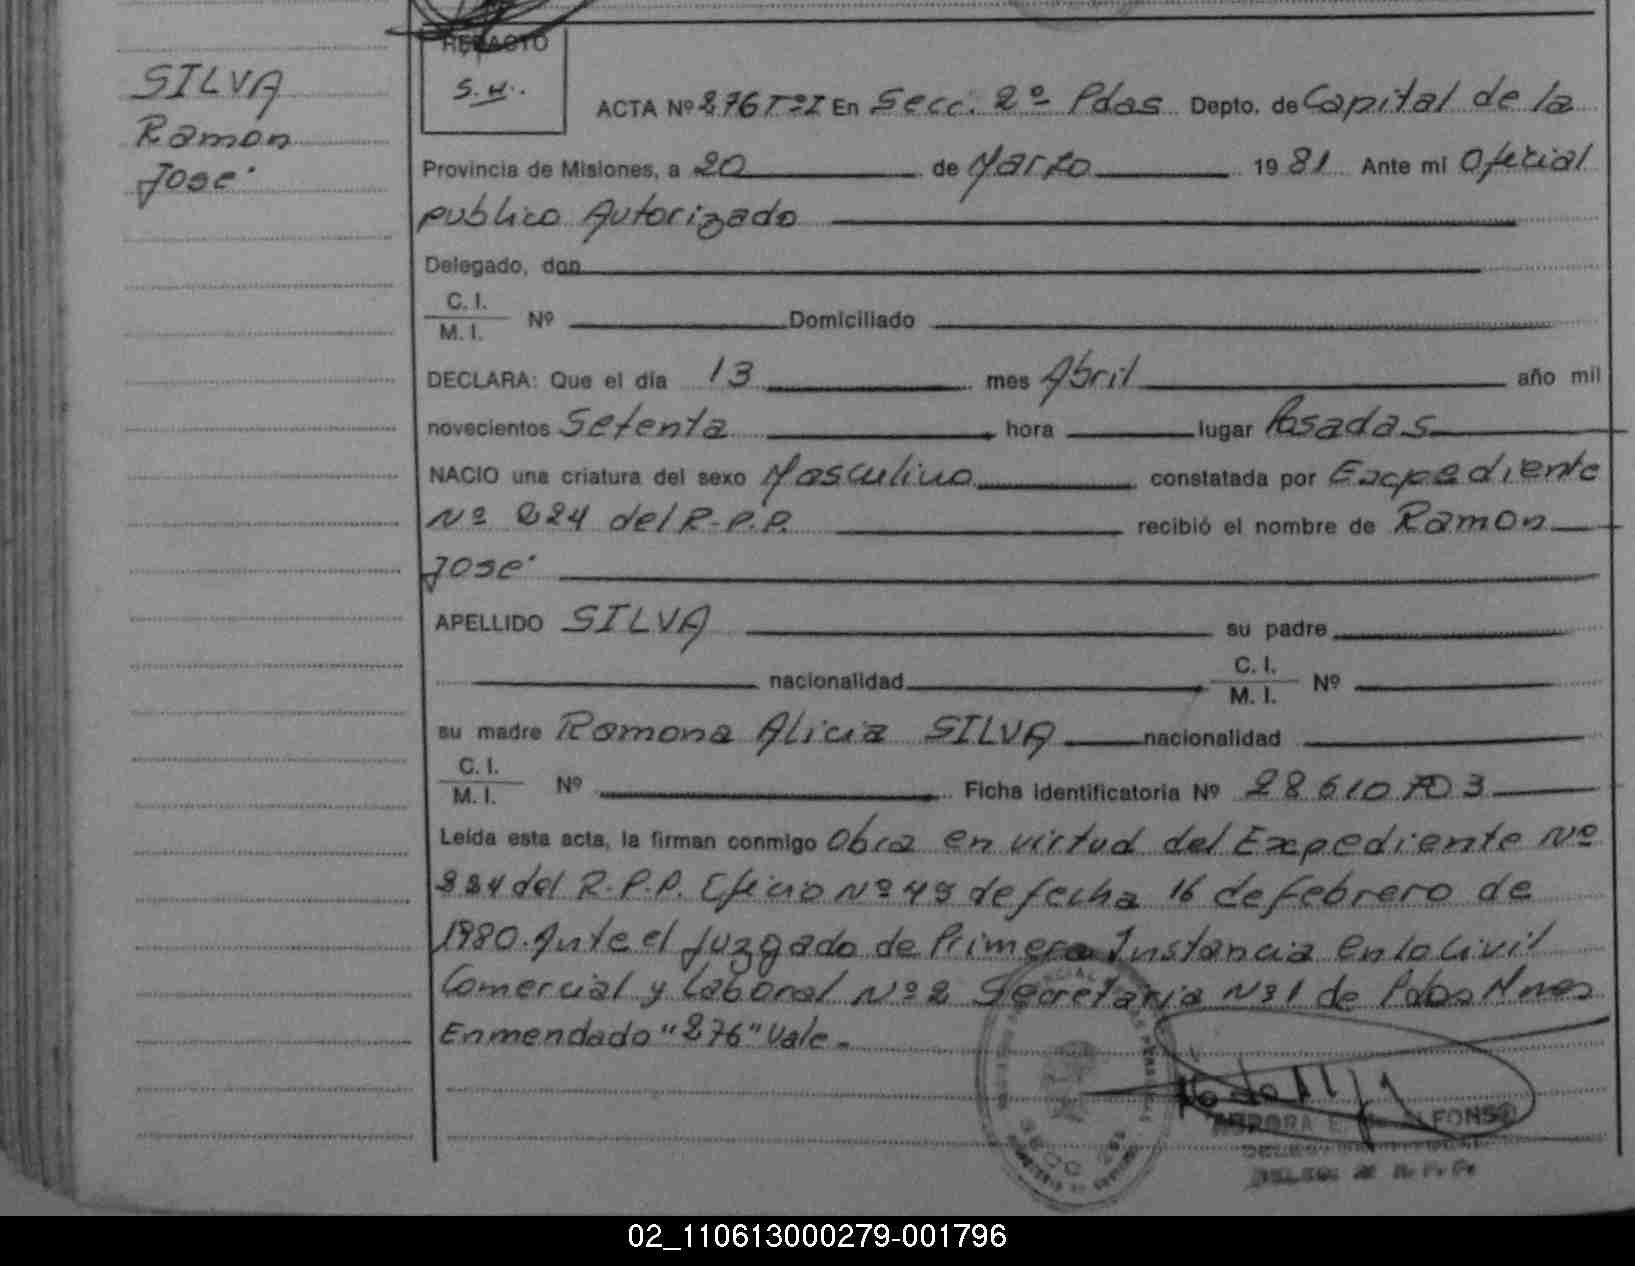 SILVA
Ramon
José
REPACTO
S.H.
ACTA Nº 276 TºI En Secc. 2º Pdas Depto. de Capital de la
Provincia de Misiones, a 20 de Marzo 1981 Ante mi Oficial
publico Autorizado
Delegado, don
C. I.
M. I. Nº Domiciliado
DECLARA: Que el día 13 mes Abril año mil
novecientos Setenta hora lugar Posadas
NACIO una criatura del sexo Masculino constatada por Expediente
Nº 224 del R.P.P. recibió el nombre de Ramon
José
APELLIDO SILVA su padre
nacionalidad C. I.
M. I. Nº
su madre Ramona Alicia SILVA nacionalidad
C. I.
M. I. Nº Ficha identificatoria Nº 28610703
Leída esta acta, la firman conmigo Obra en virtud del Expediente Nº
224 del R.P.P. Oficio Nº 49 de fecha 16 de febrero de
1980. Ante el Juzgado de Primera Instancia en lo Civil
Comercial y Laboral Nº 2 Secretaria Nº 1 de Pdas Mnes
Enmendado "276" Vale.
02_110613000279-001796